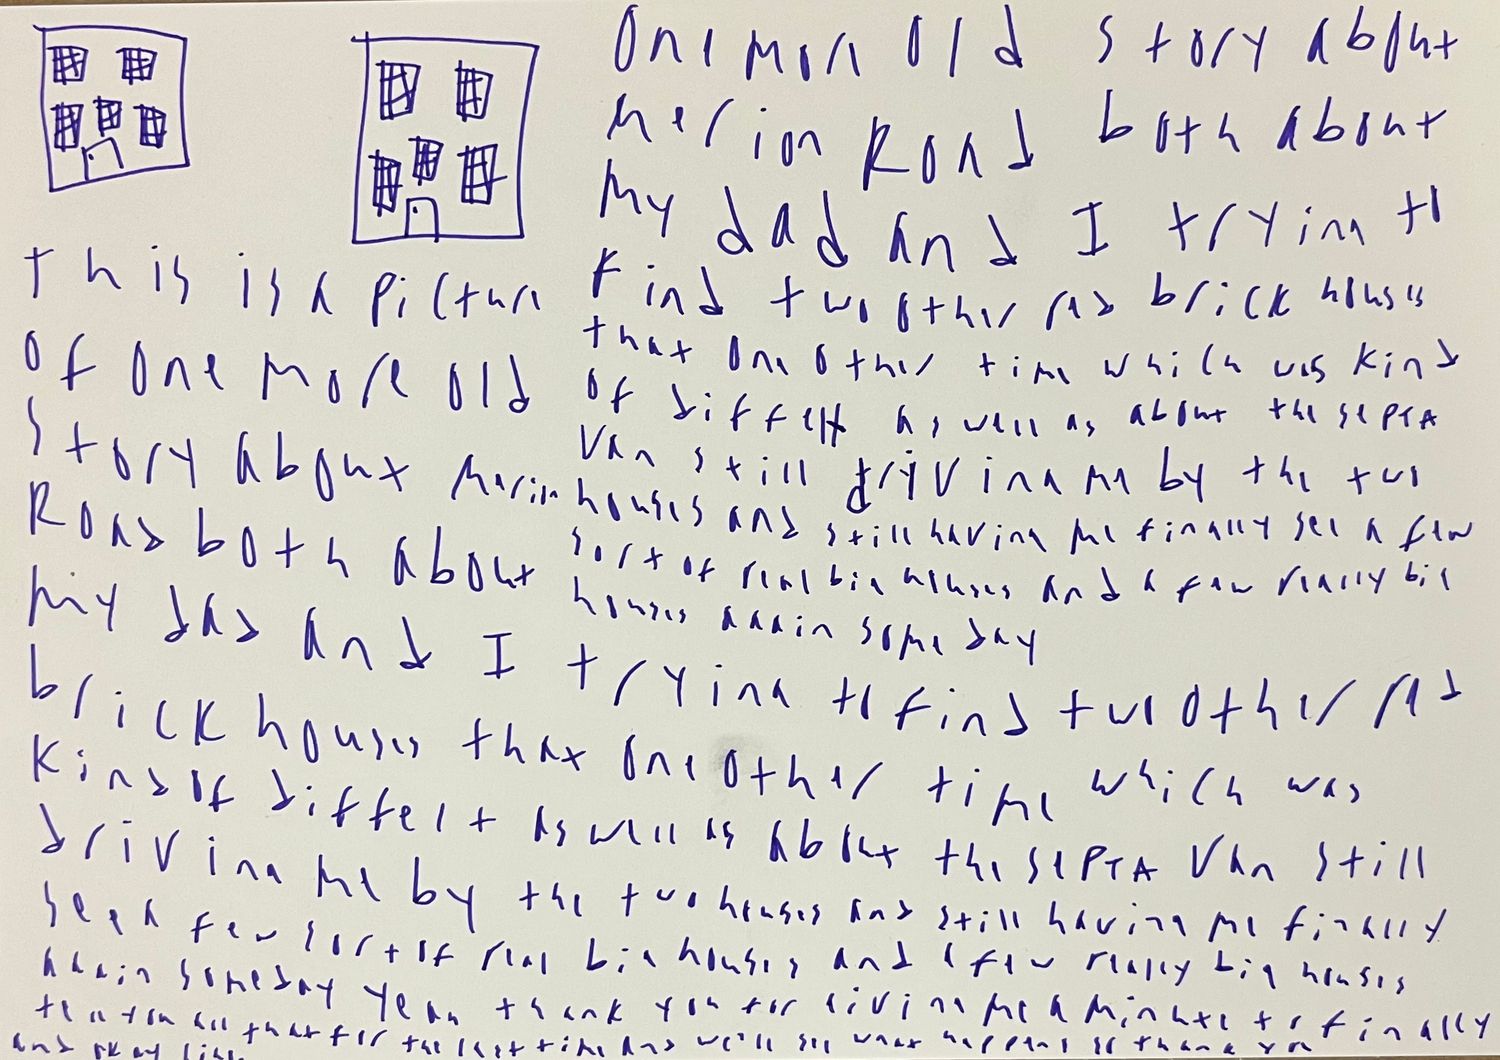 one mor old story about
merion Road both about
my dad and I tryina to
find two other red brick houses
that one other time which was kind
of diffelt as well as about the SEPTA
Van still drivina me by the two
houses and still havina me finally see a few
sort of real bia houses and a few really bia
houses aaain some day
this is a picture
of one more old
story about merion
Road both about
my dad and I tryina to find two other red
brick houses that one other time which was
kind of diffelt as well as about the SEPTA Van still
drivina me by the two houses and still havina me finally
see a few sort of real bia houses and a few really bia houses
aaain someday yeah thank you for aivina me a minute to finally
tell you all that for the last time and we'll see what happens so thank you
and okay